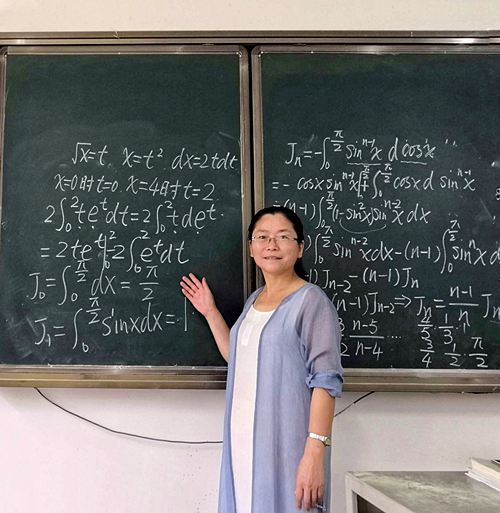 √x=t, x=t², dx=2tdt
x=0时t=0, x=4时t=2
2∫₀²te^t dt=2∫₀²t de^t
=2te^t|₀²-2∫₀²e^t dt
J₀=∫₀^(π/2)dx=π/2
J₁=∫₀^(π/2)sinxdx=1
Jₙ=-∫₀^(π/2)sin^(n-1)x dcosx
=-cosx sin^(n-1)x|+∫₀^(π/2)cosxd sin^(n-1)x
(n-1)∫₀^(π/2)(1-sin²x)sin^(n-2)xdx
∫₀^(π/2)sin^(n-2)xdx-(n-1)∫₀^(π/2)sin^n x
Jₙ₋₂-(n-1)Jₙ
(n-1)Jₙ₋₂⇒Jₙ=(n-1)/n J
n-5/n-4 ⋯ 4/5 · 2/3 · 1,
3/4 · 1/2 · π/2